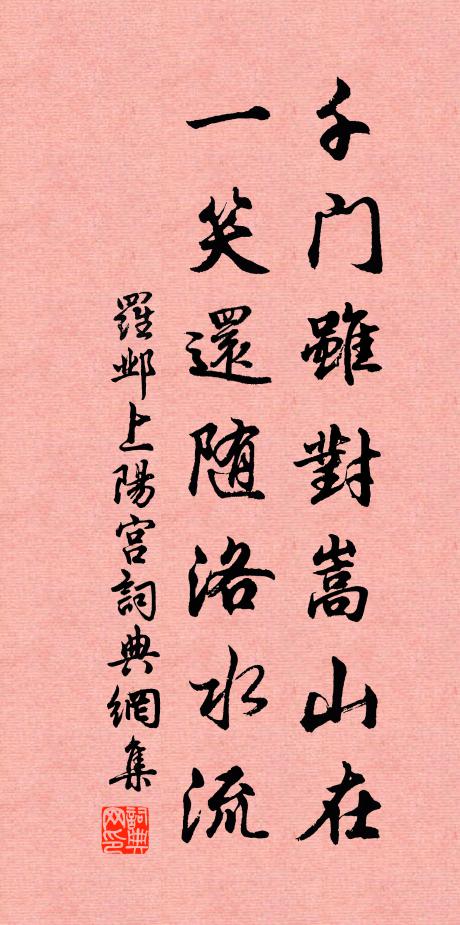 千门雖對嵩山在
一笑還随洛水流
羅邺上陽宫詞典網集
詞典
网印